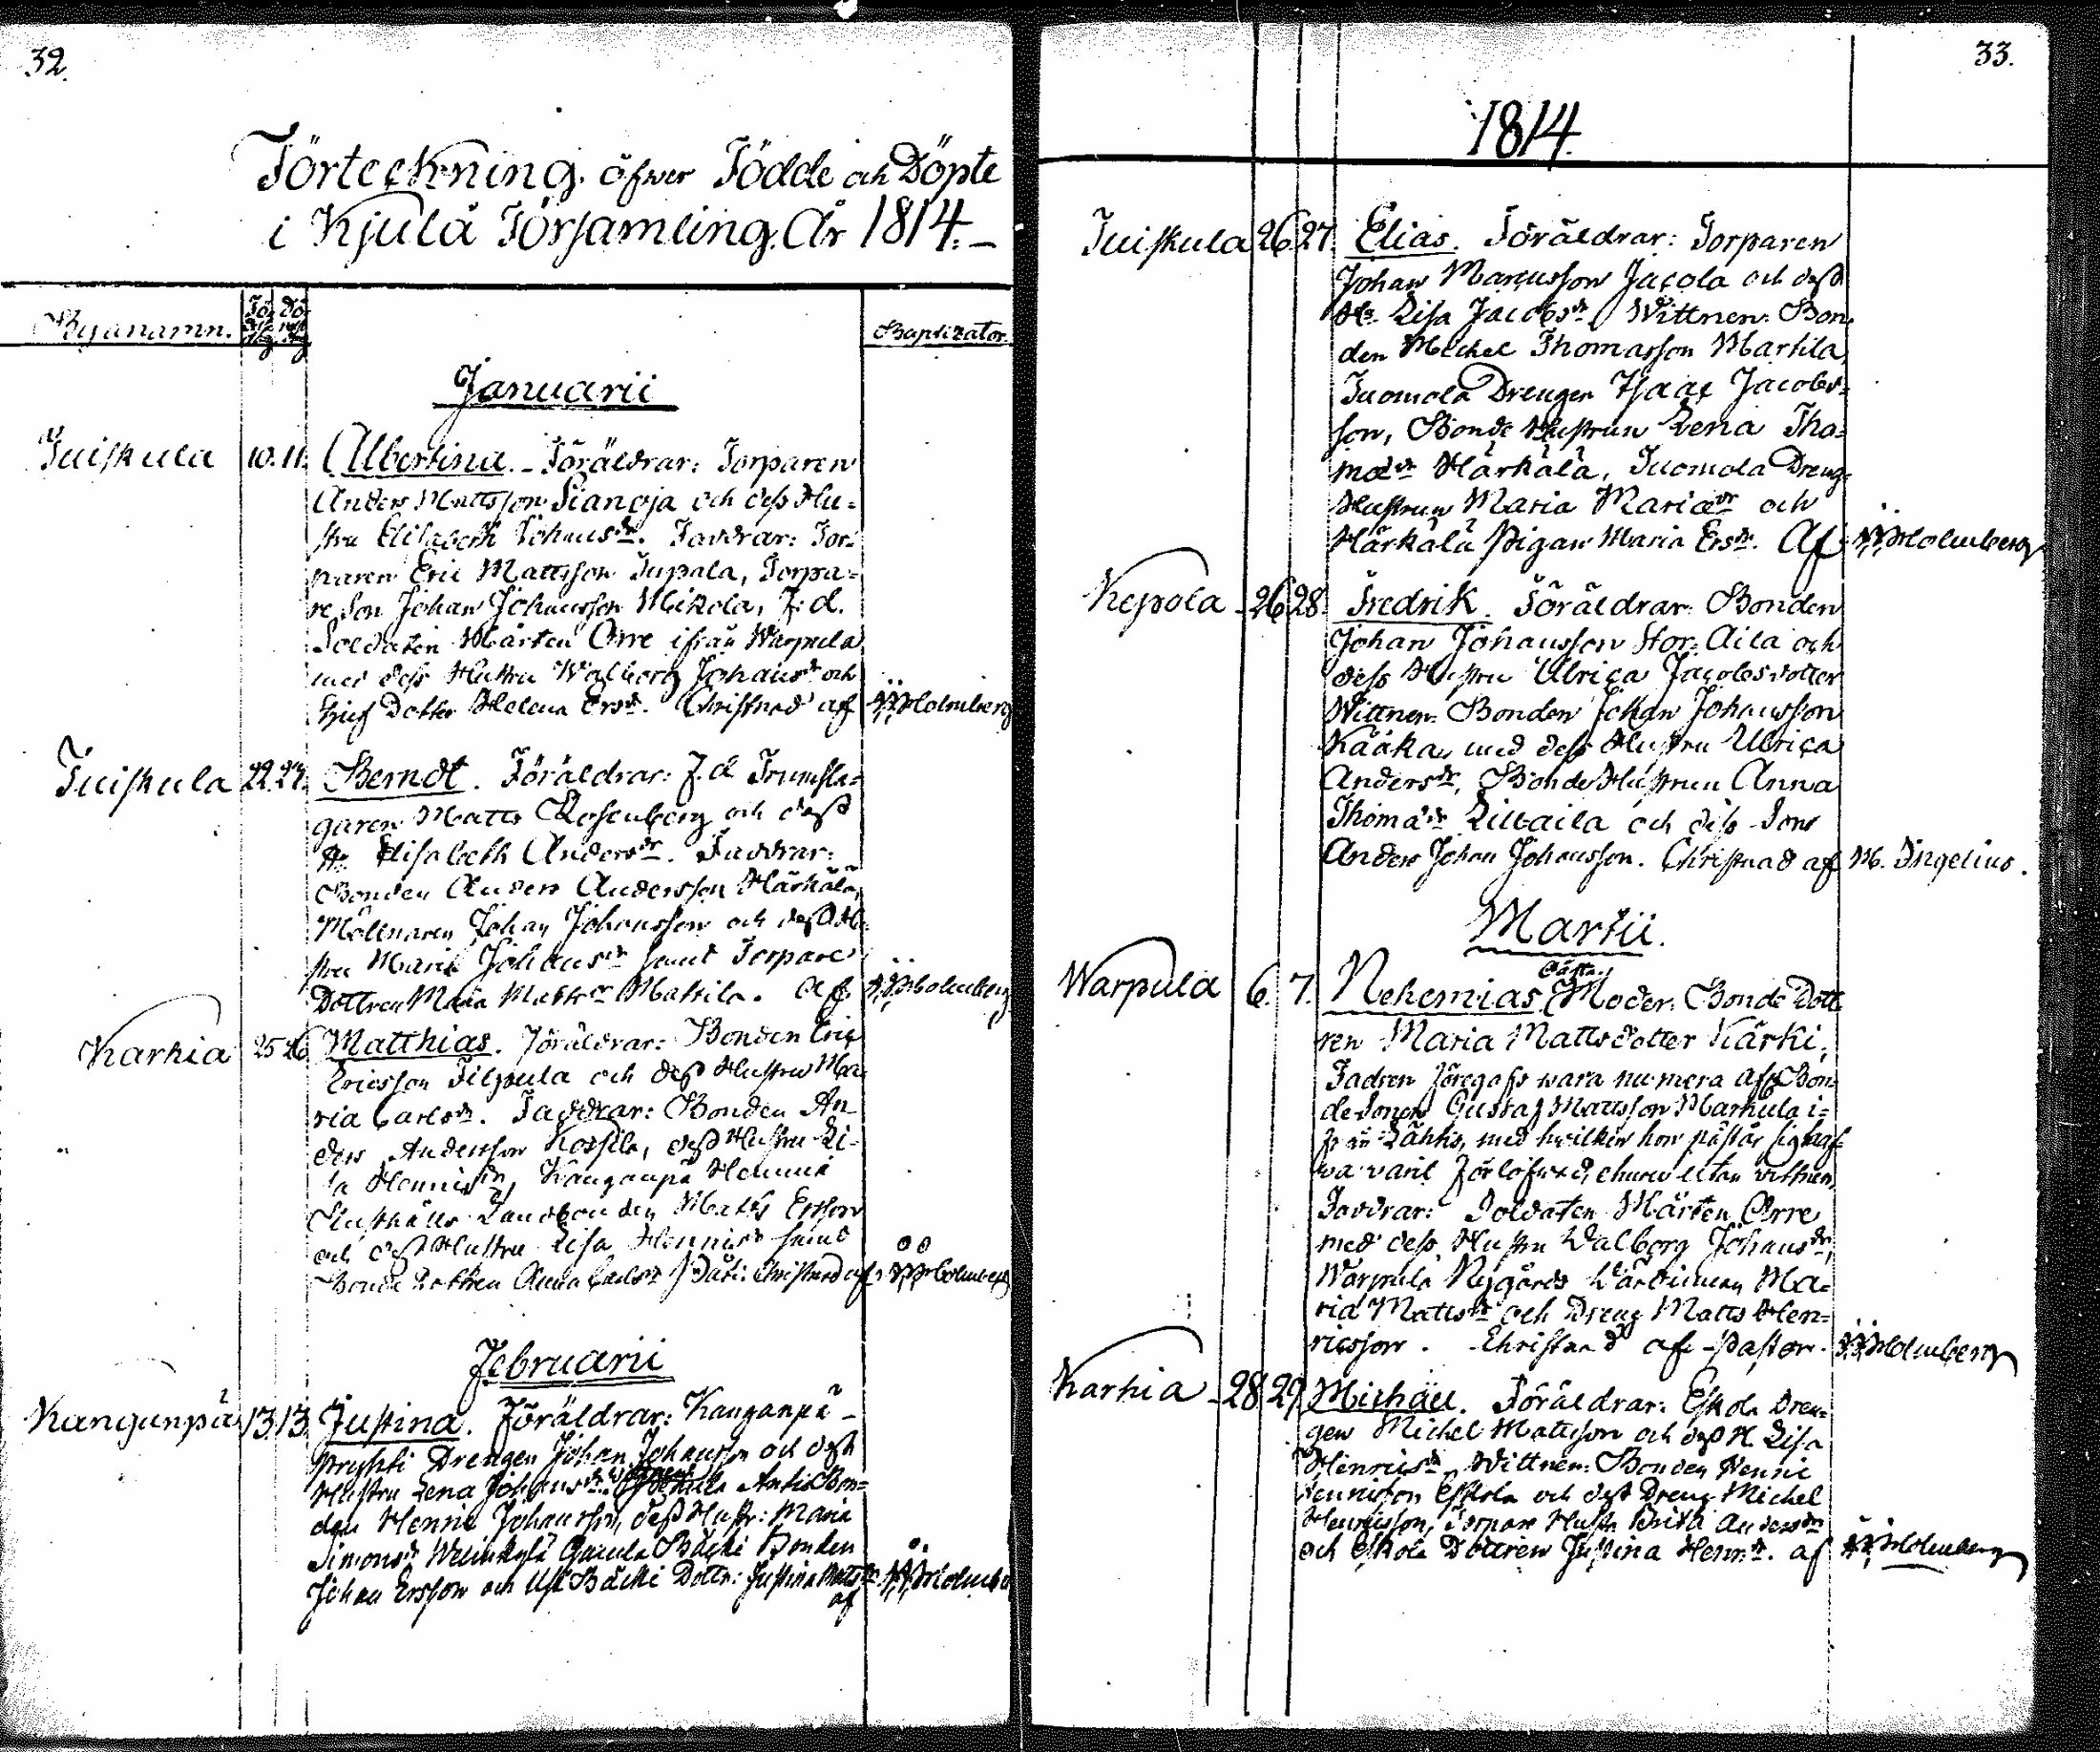 32.
Förteckning öfwer Födde och Döpte
i Kjula Församling År 1814.
Byanamn.
Födelse dag
Döpelse dag
Baptizator.
Januarii
Tuiskula 10. 11. Albertina. Föräldrar: Torparen
Anders Mattsson Pianoja och dess Hu=
stru Elisabeth Johansdr. Faddrar: Tor=
paren Eric Mattsson Tupala, Torpa=
re Son Johan Johansson Mikola, F: d.
Soldaten Mårten Orre ifrån Warpula
med dess Hustru Walborg Johansdr och
Dotter Helena Ersdr. Christnad af Holmberg
Tuiskula 22. 24. Berndt. Föräldrar: F. d. Trumsla=
garen Matts Rosenberg och dess
H: Elisabeth Andersdr. Faddrar:
Bonden Anders Andersson Härkälä,
Möllnaren Johan Johansson och dess Hu=
stru Maria Johansdr samt Torpare
Dottren Maria Mattsdr Mattila. Af Holmberg
Karhia 25 26 Matthias. Föräldrar: Bonden Eric
Ericsson Filpula och dess Hustru Ma=
ria Carlsdr. Faddrar: Bonden An=
ders Andersson Kossila, dess Hustru Li=
sa Henricsdr, Kanganpä Heinni
Rusthålls Landbonden Matts Ersson
och dess Hustru Lisa Henricsdr samt
Bonde Dottren Anna Carlsdr Christnad af Holmberg
Februarii
Kanganpä 13 13 Justina. Föräldrar: Kanganpä
Prykti Drengen Johan Johansson och dess
Hustru Lena Johansdr. Wittnen: Antis Bon=
den Henric Johansson, dess Hustr: Maria
Simonsdr, Bäcki Bonden
Johan Ersson och Bäcki Dottr: Justina Mattsdr.
af Holmberg
33.
1814.
Tuiskula 26 27. Elias. Föräldrar: Torparen
Johan Marcusson Jacola och dess
H: Lisa Jacobsdr. Wittnen: Bon=
den Michel Thomasson Martila,
Tuomola Drengen Isaac Jacobs=
son, Bonde Hustrun Lena Tho=
madr Härkälä, Tuomola Dreng
Hustrun Maria Mariædr och
Härkälä Pigan Maria Ersdr. Af Holmberg
Kepola 26 28. Fredrik. Föräldrar: Bonden
Johan Johansson Stor-Aila och
dess Hustru Ulrica Jacobsdotter
Wittnen: Bonden Johan Johansson
Kääkä, med dess Hustru Ulrica
Andersdr, Bonde Hustrun Anna
Thomædr Lillaila och dess Son
Anders Johan Johansson. Christnad af M. Ingelius.
Martii.
Warpula 6. 7. Nehemias. Oäkta. Moder: Bonde Dott
ren Maria Mattsdotter Kärki,
Fadren föregafs wara numera Bon=
de Sonen Gustaf Mattsson Markula i=
från Lähtis, med hwilken hon påstår sig haf=
wa varit förlofwad, ehuru utan vittnen.
Faddrar: Soldaten Mårten Orre
med dess Hustru Walborg Johansdr,
Warpula Nygårds Wärdinnan Ma=
ria Mattsdr och Dreng Matts Hen=
ricsson. Christnad af Pastor Holmberg
Karhia 28 29 Michaël. Föräldrar: Eskola Dren=
gen Michel Mattsson och dess H. Lisa
Henricsdr. Wittnen: Bonden Henric
Henricsson Eskola och dess Dreng Michel
Henricsson, Torpare Hustr Brita Andersdr
och Eskola Dottren Justina Henrdr. af Holmberg